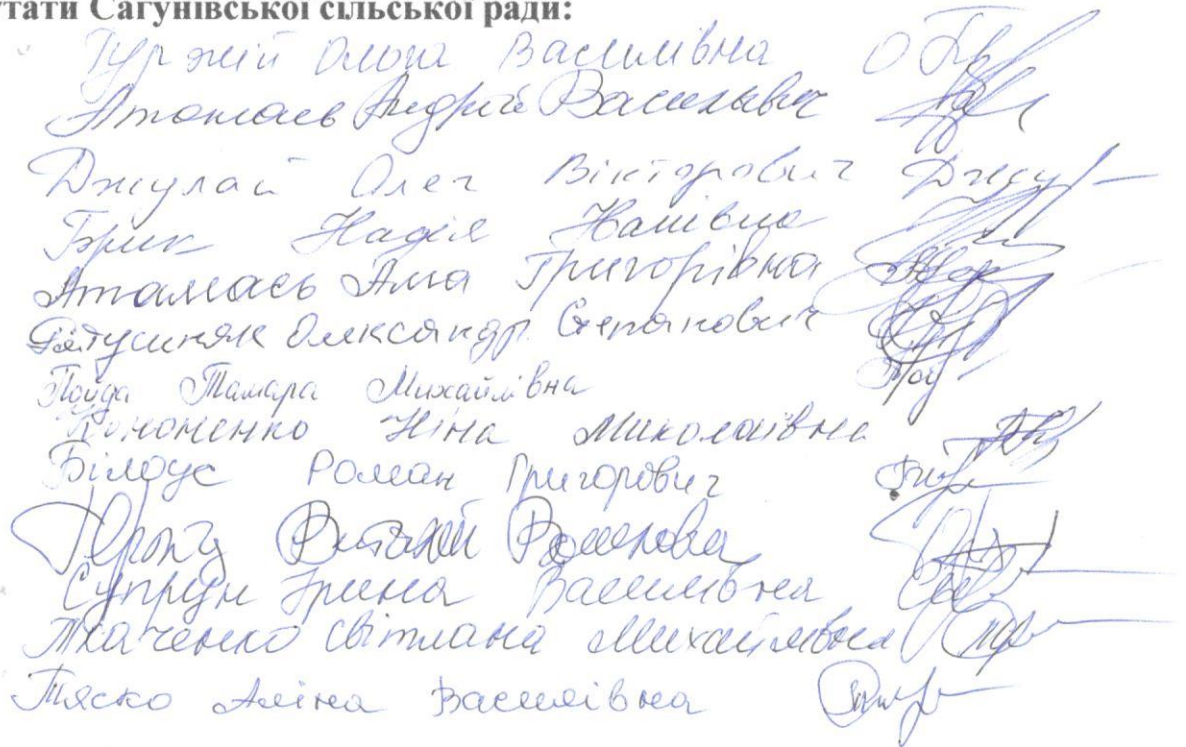 утати Сагунівської сільської ради:
Гуржій Ольга Василівна
Атамась Андрій Васильович
Джулай Олег Вікторович
Брик Надія
Атамась Алла Григорівна
Олександр Степанович
Пойда Тамара Михайлівна
Кононенко Ніна Миколаївна
Білоус Роман Григорович
Віталій
Супрун Ірина Василівна
Ткаченко Світлана Михайлівна
Тяско Аліна Василівна